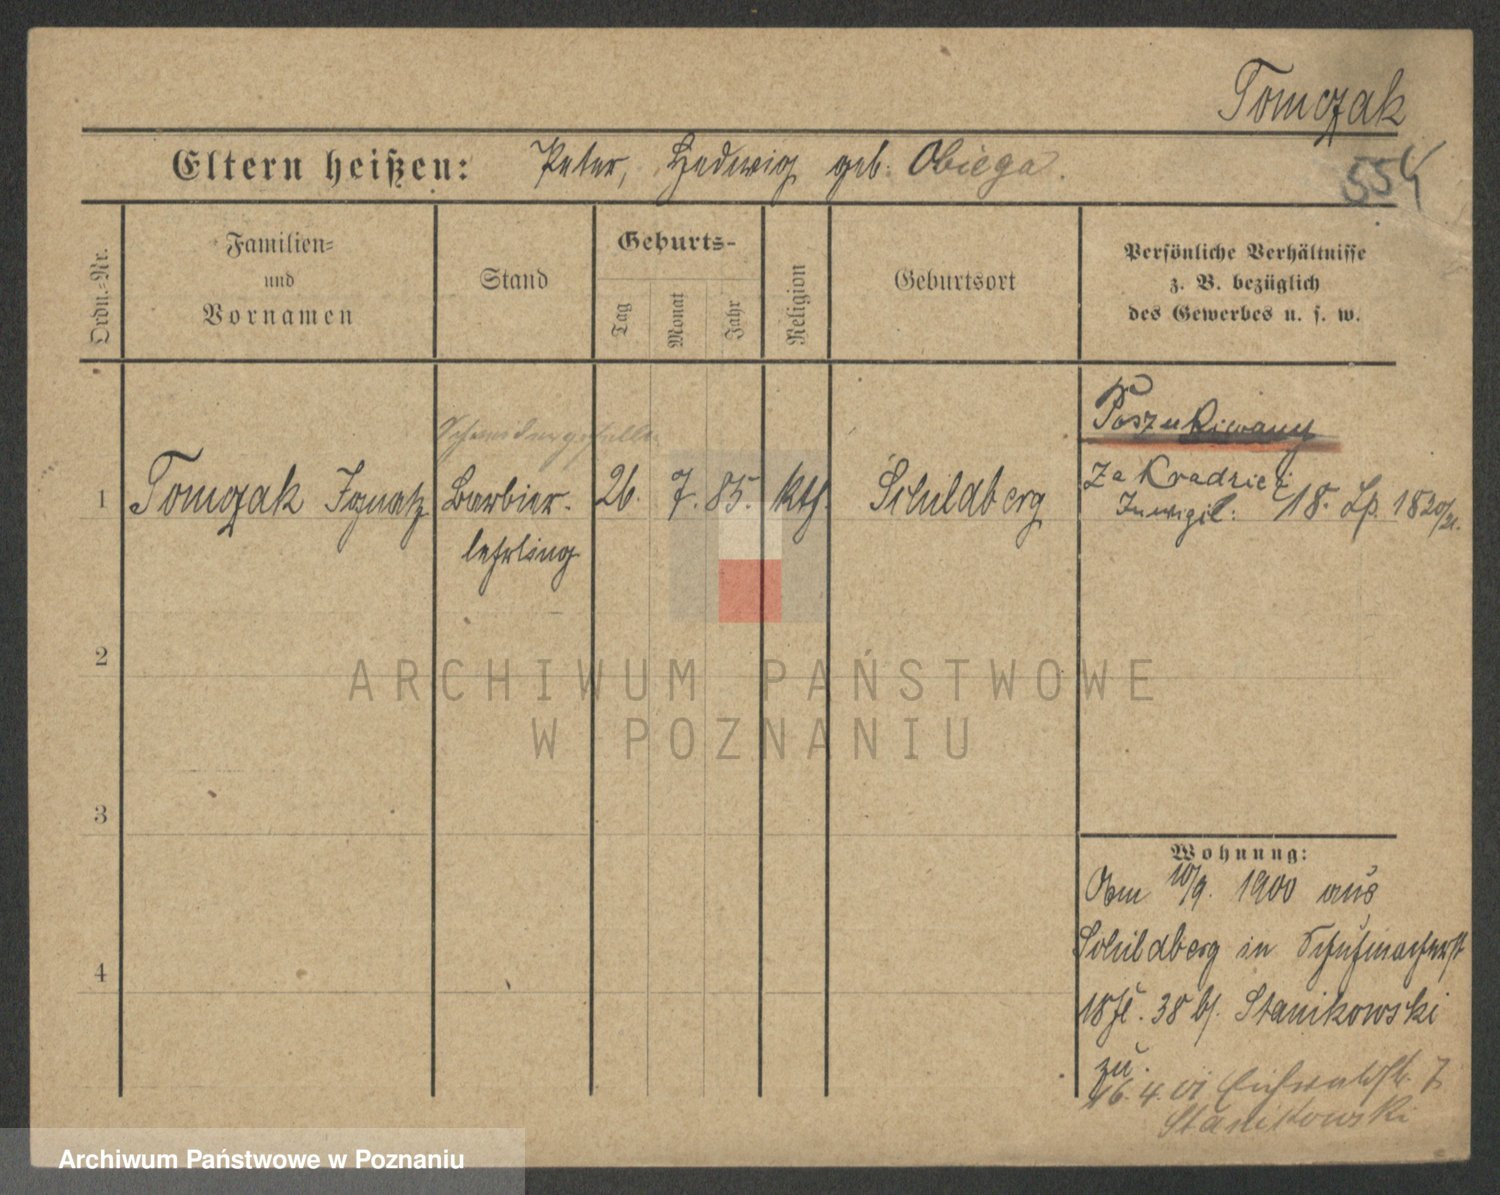 Tomczak
554
Eltern heißen: Peter, Hedwig geb. Obiega.
Ordn.-Nr.
Familien-
und
Vornamen
Stand
Geburts-
Tag
Monat
Jahr
Religion
Geburtsort
Persönliche Verhältnisse
z. B. bezüglich
des Gewerbes u. s. w.
Poszukiwany
za Kradzież
Inwigil: 18. Lp. 1820/21.
Schneidergeselle
1 Tomczak Ignatz Barbier- 26. 7. 85. kth. Schildberg
lehrling
2
3
4
Wohnung:
Am 10/9. 1900 aus
Schildberg in Schuhmacherst
18 38 bj. Stanikowski
zu.
16.4.01 Eichwaldstr. 7
Stanikowski
ARCHIWUM PAŃSTWOWE
W POZNANIU
Archiwum Państwowe w Poznaniu